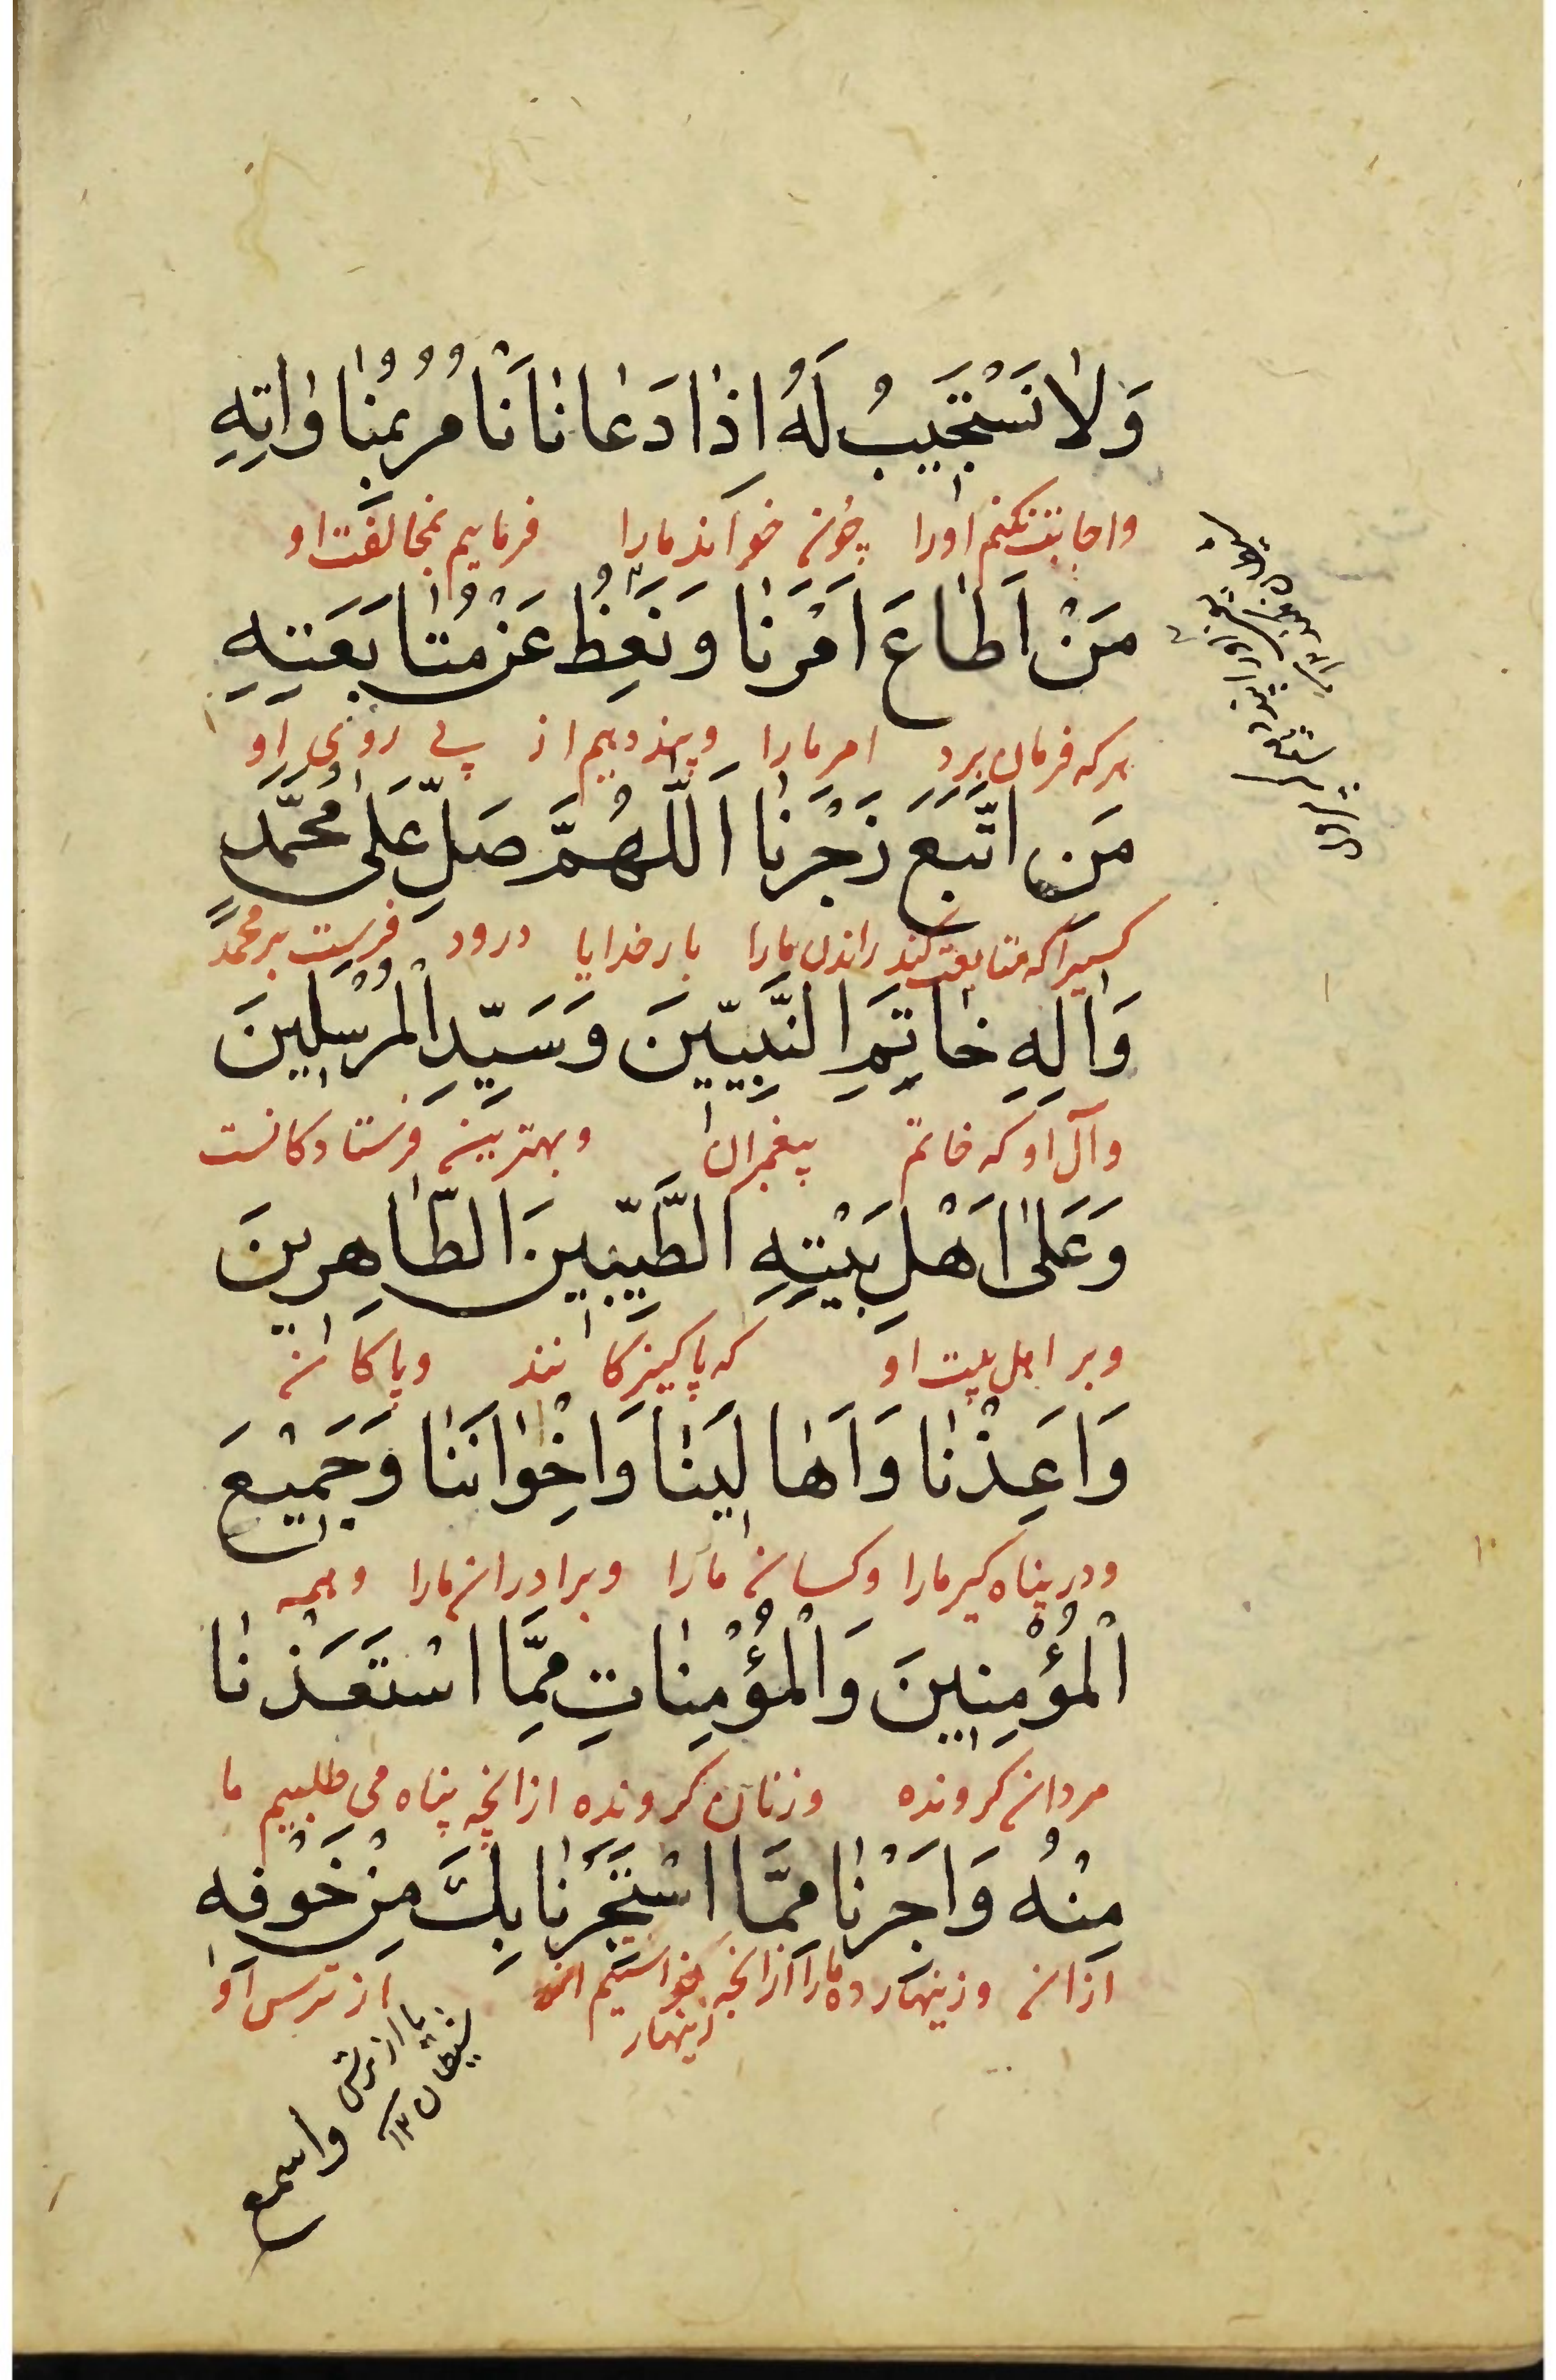 وَلٰا نَسْتَجيبُ لَهُ اِذٰا دَعٰانٰا نَأْمُرُ بِمُنٰاوٰاتِهِ
واجابت نکنم اورا چون خواند مارا فرماییم بمخالفت او
مَنْ اَطٰاعَ اَمْرَنٰا وَنَعِظُ عَنْ مُتٰابَعَتِهِ
هرکه فرمان برد امر مارا وپند دهیم از پی روی او
مَنِ اتَّبَعَ زَجْرَنٰا اَللّٰهُمَّ صَلِّ عَلٰى مُحَمَّدٍ
کسیرا که متابعت کند راندن مارا بار خدایا درود فرست بر محمد
وَاٰلِهِ خٰاتِمِ النَّبِيّينَ وَسَيِّدِ الْمُرْسَلينَ
وآل او که خاتم پیغمبران وبهترین فرستادکانست
وَعَلٰى اَهْلِ بَيْتِهِ الطَّيِّبينَ الطّٰاهِرينَ
وبر اهل بیت او که پاکیزکانند وپاکان
وَاَعِذْنٰا وَاَهٰالِيَنٰا وَاِخْوٰانَنٰا وَجَميْعَ
ودر پناه کیر مارا وکسان مارا وبرادران مارا وهمه
الْمُؤْمِنينَ وَالْمُؤْمِنٰاتِ مِمَّا اسْتَعَذْنٰا
مردان کرونده وزنان کرونده ازانچه پناه می طلبیم ما
مِنْهُ وَاَجِرْنٰا مِمَّا اسْتَجَرْنٰا بِكَ مِنْ خَوْفِهِ
ازان وزینهار ده مارا ازانچه بخواستیم از ترس او
زینهار
یا از ترس
شیطان ۱۲
واسمع